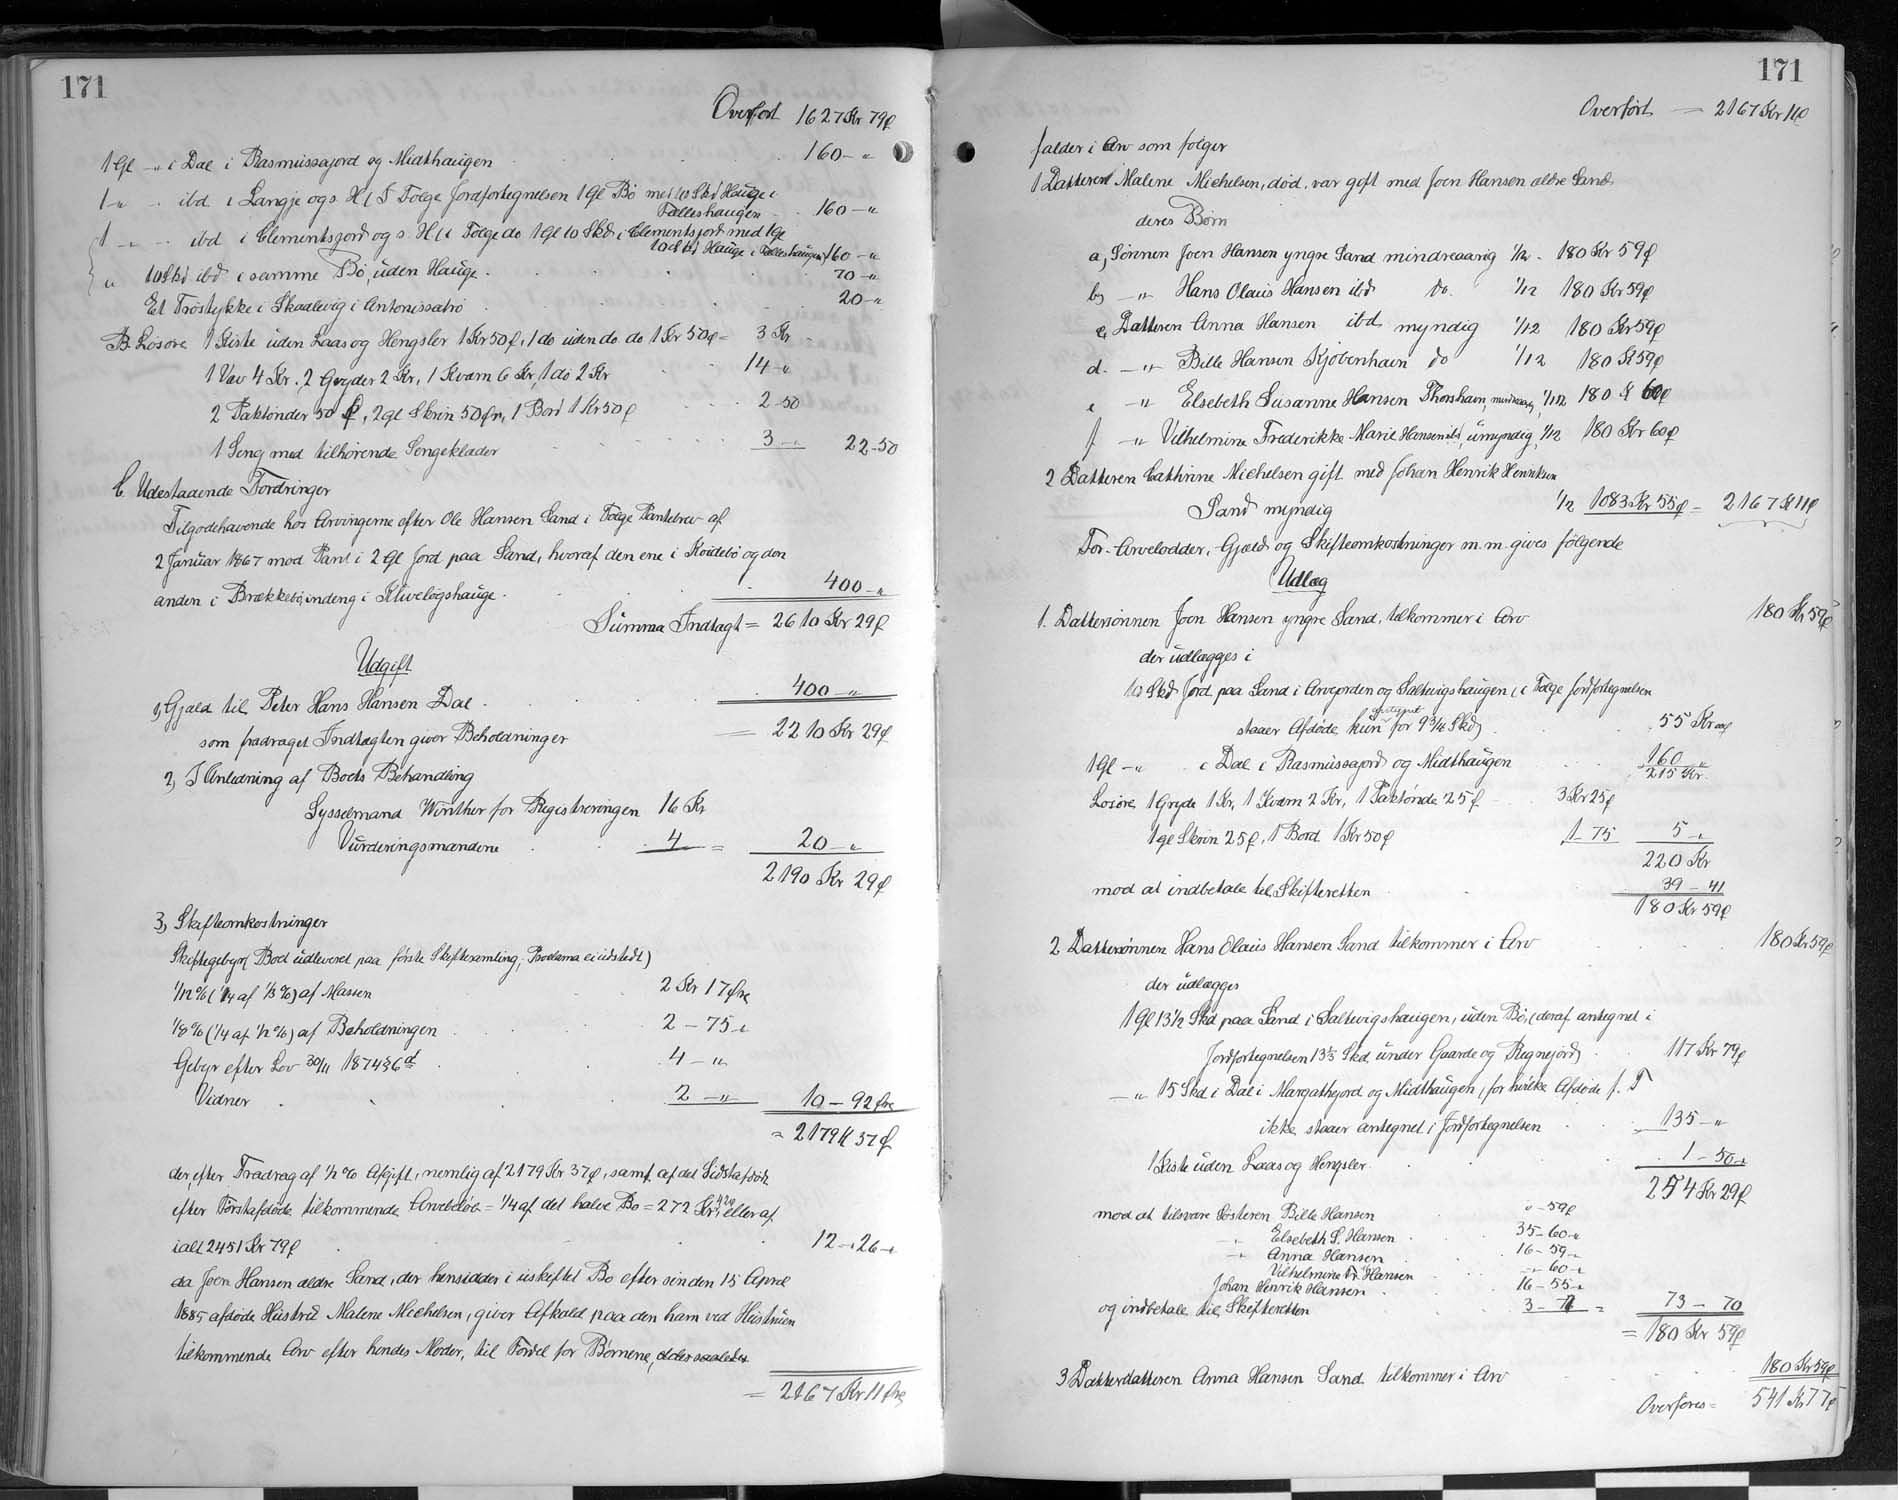 171
Overført 1627 Kr 79 ø
1 Gl - " i Dal i Rasmussajord og Midthaugen 160 - "
1 " - ibd i Langje og s. H ( I Følge Jordfortegnelsen 1 Gl Bø med 10 Skd Hauge i
Fælleshaugen 160 - "
1 - " - ibd i Clementsjord og s. H ( i Følge do 1 Gl 10 Skd i Clementsjord med 1 Gl
10 Skd Hauge i Fælleshaugen) 160 - "
" 10 Skd ibd i samme Bø, uden Hauge 70 - "
Et Tröstykke i Skaalevig i Antonissatrö 20 - "
B. Løsøre 1 Kiste uden Laas og Hengsler 1 Kr 50 ø, 1 do uden do do 1 Kr 50 ø = 3 Kr -
1 Vav 4 Kr. 2 Gryder 2 Kr, 1 Kværn 6 Kr, 1 do 2 Kr 14 - "
2 Saktønder 50 ø, 2 gl Skrin 50 øre, 1 Bord 1 Kr 50 ø 2 - 50
1 Seng med tilhørende Sengeklæder 3 - " 22 - 50
C. Udestaaende Fordringer
Tilgodehavende hos Arvingerne efter Ole Hansen Sand i Følge Pantebrev af
2 Januar 1867 mod Pant i 2 Gl Jord paa Sand, hvoraf den ene i Koidebø og den
anden i Brækkebø, indeng i Kliveløgshauge 400 - "
Summa Indtægt = 2610 Kr 29 ø
Udgift
1, Gjæld til Peter Hans Hansen Dal 400 - "
som fradraget Indtægten giver Beholdninger = 2210 Kr 29 ø
2, I Anledning af Boets Behandling
Sysselmand Winther for Registreringen 16 Kr
Vurderingsmændene 4 = 20 - "
2190 Kr 29 ø
3, Skifteomkostninger
Skiftegebyr (Boet udleveret paa første Skiftesamling, Proclama ei udstedt)
1/12 % (1/4 af 1/3 %) af Massen 2 Kr 17 Øre
1/8 % (1/4 af 1/2 %) af Beholdningen 2 - 75 "
Gebyr efter Lov 30/11 1874 § 6 4 - "
Vidner 2 - " 10 - 92 Øre
= 2179 Kr 37 ø
der, efter Fradrag af 1/2 % Afgift, nemlig af 2179 Kr 37 ø, samt af det Sidstafdøde
efter Førstafdøde tilkommende Arvebeløb = 1/4 af det halve Bo = 272 Kr 42 ø, eller af
ialt 2451 Kr 79 ø 12 - 26 -
da Joen Hansen ældre Sand, der hensidder i uskiftet Bo efter sin den 15 April
1885 afdøde Hustru Malene Michelsen, giver Afkald paa den ham ved Hustruen
tilkommende Arv efter hendes Moder, til Fordel for Børnene,
= 2167 Kr 11 Øre
171
Overført = 2167 Kr 11 ø
falder i Arv som følger
1 Datteren Malene Michelsen, død, var gift med Joen Hansen ældre Sand
deres Børn
a, Sønnen Joen Hansen yngre Sand mindreaarig 1/12 - 180 Kr 59 ø
b, - " Hans Olaus Hansen ibd do. 1/12 180 Kr 59 ø
c, Datteren Anna Hansen ibd myndig 1/12 180 Kr 59 ø
d. - " Bille Hansen Kjøbenhavn do 1/12 180 Kr 59 ø
e - " Elsebeth Susanne Hansen Thorshavn, mindreaarig, 1/12 180 Kr 60 ø
f. - " Vilhelmine Frederikke Marie Hansen ibd, umyndig, 1/12 180 Kr 60 ø
2 Datteren Cathrine Michelsen gift med Johan Henrik Henriksen
Sand myndig 1/2 1083 Kr 55 ø = 2167 Kr 11 ø
For Arvelodder, Gjæld og Skifteomkostninger m. m. gives følgende
Udlæg
1. Dattersønnen Joen Hansen yngre Sand, tilkommer i Arv 180 Kr 59 ø
der udlægges i
10 Skd Jord paa Sand i Arvejorden og Saltvigshaugen, ( i Følge Jordfortegnelsen
staaer Afdøde kun antegnet for 9 3/4 Skd) 55 Kr
1 Gl - " i Dal i Rasmussajord og Midthaugen 160 "
215 Kr.
Løsøre, 1 Gryde 1 Kr, 1 Kværn 2 Kr, 1 Saktønde 25 ø 3 Kr 25 ø
1 gl Skrin 25 ø, 1 Bord 1 Kr 50 ø 1 - 75 5 - "
220 Kr
mod at indbetale til Skifteretten 39 - 41
180 Kr 59 ø
2 Dattersønnen Hans Olaus Hansen Sand tilkommer i Arv 180 Kr 59 ø
der udlægges
1 Gl 13 1/2 Skd paa Sand i Saltvigshaugen, uden Bø, (deraf antegnet i
Jordfortegnelsen 13 1/3 Skd under Gaarde og Regnejord) 117 Kr 79 ø
- " 15 Skd i Dal i Margathejord og Midthaugen, for hvilke Afdøde f. T
ikke staaer antegnet i Jordfortegnelsen 135 - "
1 Kiste uden Laas og Hengsler 1 - 50 -
254 Kr 29 ø
mod at tilsvare Søsteren Bille Hansen " - 59 ø
- " Elsebeth S. Hansen 35 - 60 "
- " Anna Hansen 16 - 59 -
Vilhelmine Fr. Hansen - " 60 -
Johan Henrik Hansen 16 - 55 -
og indbetale til Skifteretten 3 - 77 = 73 - 70
= 180 Kr 59 ø
3 Datterdatteren Anna Hansen Sand tilkommer i Arv 180 Kr 59 ø
Overføres = 541 Kr 77 ø